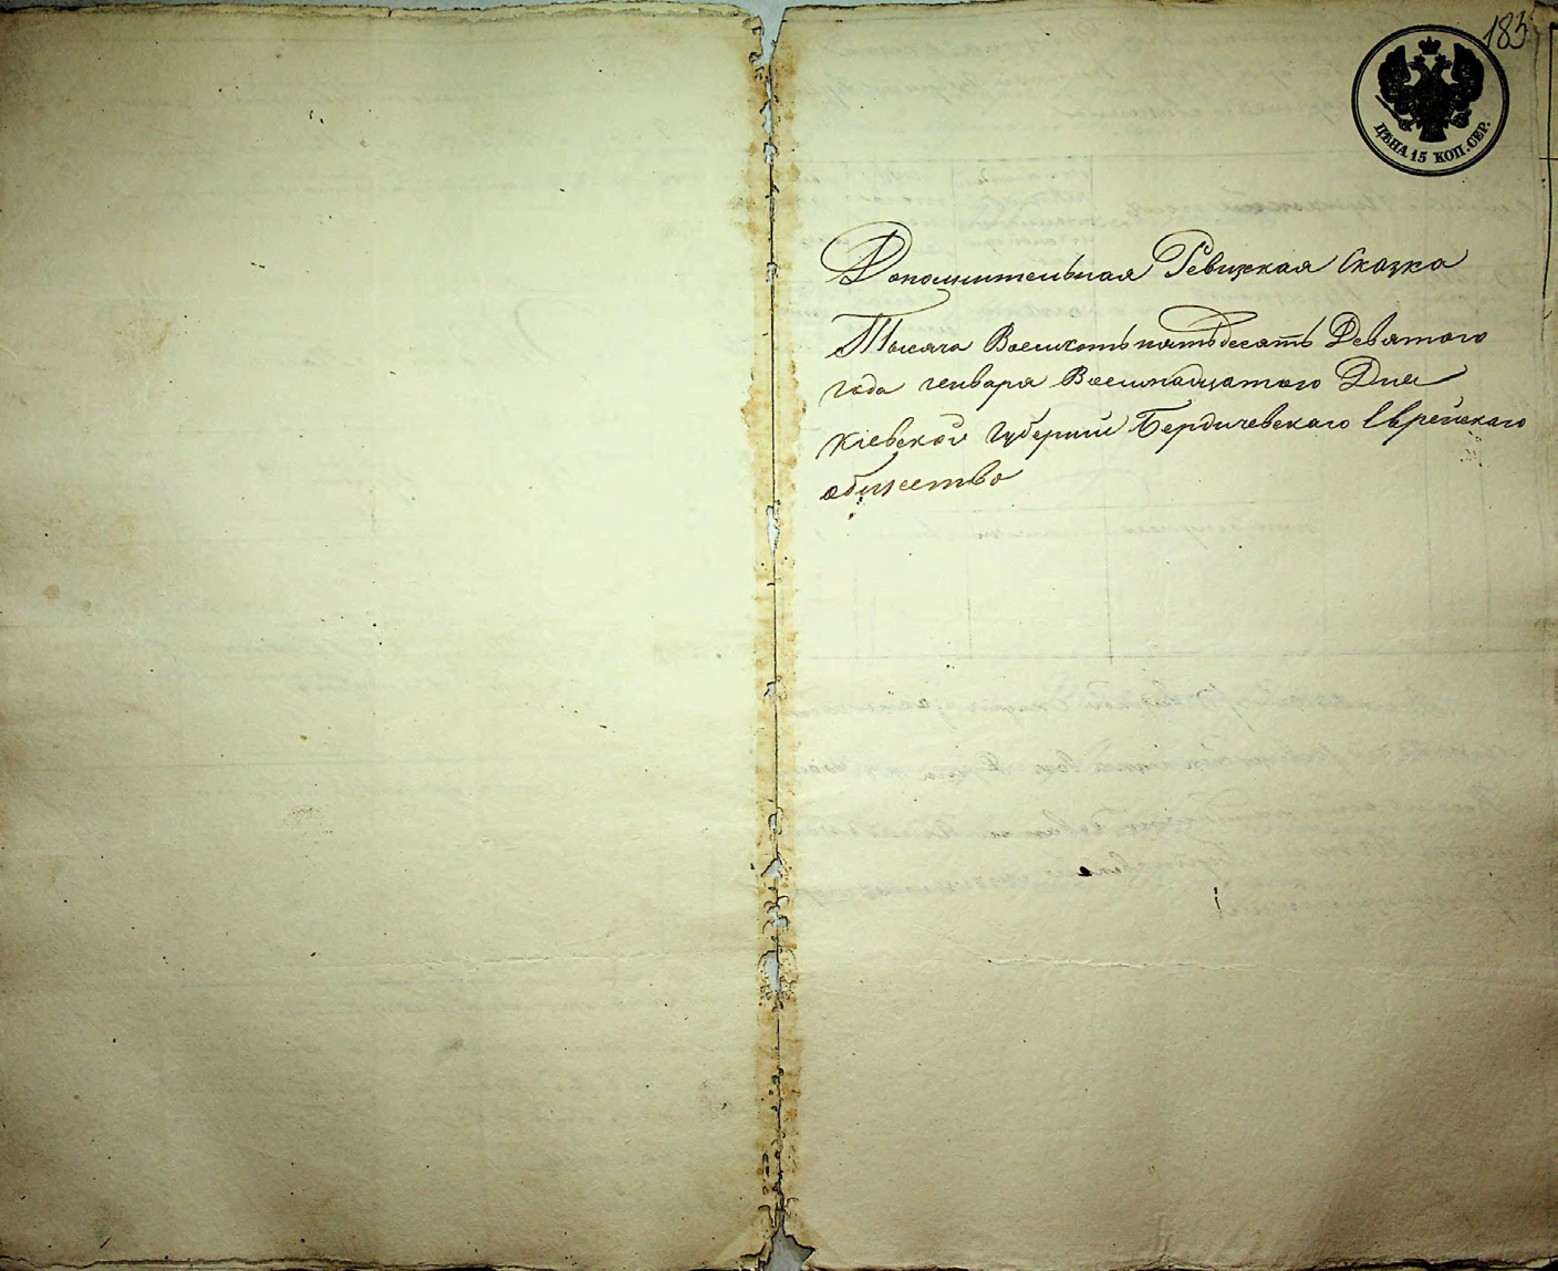 183
ЦѢНА 15 КОП. СЕР.
Дополнительная Ревизкая Сказка
Тысяча Восемсотъ пятьдесятъ Девятого
года генваря Восемнадцатого Дня
Кіевской губерніи Бердичевскаго Еврейскаго
общество